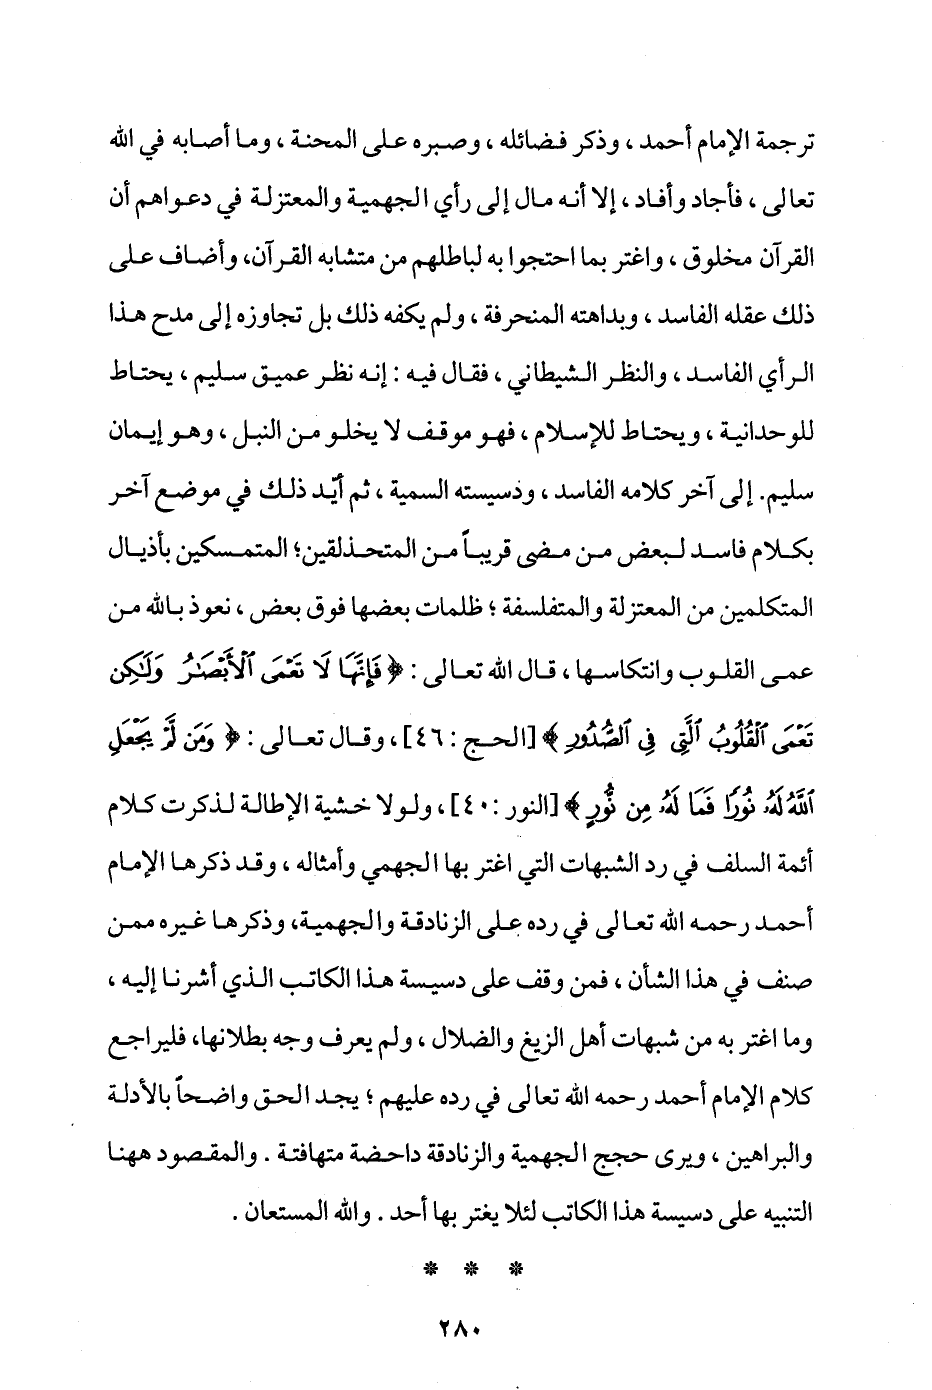 ترجمة الإمام أحمد ، وذكر فضائله ، وصبره على المحنة ، وما أصابه في الله
تعالى ، فأجاد وأفاد ، إلا أنه مال إلى رأي الجهمية والمعتزلة في دعواهم أن
القرآن مخلوق ، واغتر بما احتجوا به لباطلهم من متشابه القرآن، وأضاف على
ذلك عقله الفاسد ، وبداهته المنحرفة ، ولم يكفه ذلك بل تجاوزه إلى مدح هذا
الرأي الفاسد ، والنظر الشيطاني ، فقال فيه : إنه نظر عميق سليم ، يحتاط
للوحدانية ، ويحتاط للإسلام ، فهو موقف لا يخلو من النبل ، وهو إيمان
سليم. إلى آخر كلامه الفاسد ، ودسيسته السمية ، ثم أيّد ذلك في موضع آخر
بكلام فاسد لبعض من مضى قريباً من المتحذلقين؛ المتمسكين بأذيال
المتكلمين من المعتزلة والمتفلسفة ؛ ظلمات بعضها فوق بعض ، نعوذ بالله من
عمى القلوب وانتكاسها ، قال الله تعالى : ﴿ فَإِنَّهَا لَا تَعْمَى ٱلْأَبْصَـٰرُ وَلَـٰكِن
تَعْمَى ٱلْقُلُوبُ ٱلَّتِى فِى ٱلصُّدُورِ ﴾ [الحج : ٤٦] ، وقال تعالى : ﴿ وَمَن لَّمْ يَجْعَلِ
ٱللَّهُ لَهُۥ نُورًا فَمَا لَهُۥ مِن نُّورٍ ﴾ [النور : ٤٠] ، ولولا خشية الإطالة لذكرت كلام
أئمة السلف في رد الشبهات التي اغتر بها الجهمي وأمثاله ، وقد ذكرها الإمام
أحمد رحمه الله تعالى في رده على الزنادقة والجهمية، وذكرها غيره ممن
صنف في هذا الشأن ، فمن وقف على دسيسة هذا الكاتب الذي أشرنا إليه ،
وما اغتر به من شبهات أهل الزيغ والضلال ، ولم يعرف وجه بطلانها، فليراجع
كلام الإمام أحمد رحمه الله تعالى في رده عليهم ؛ يجد الحق واضحاً بالأدلة
والبراهين ، ويرى حجج الجهمية والزنادقة داحضة متهافتة . والمقصود ههنا
التنبيه على دسيسة هذا الكاتب لئلا يغتر بها أحد . والله المستعان .
* * *
٢٨٠